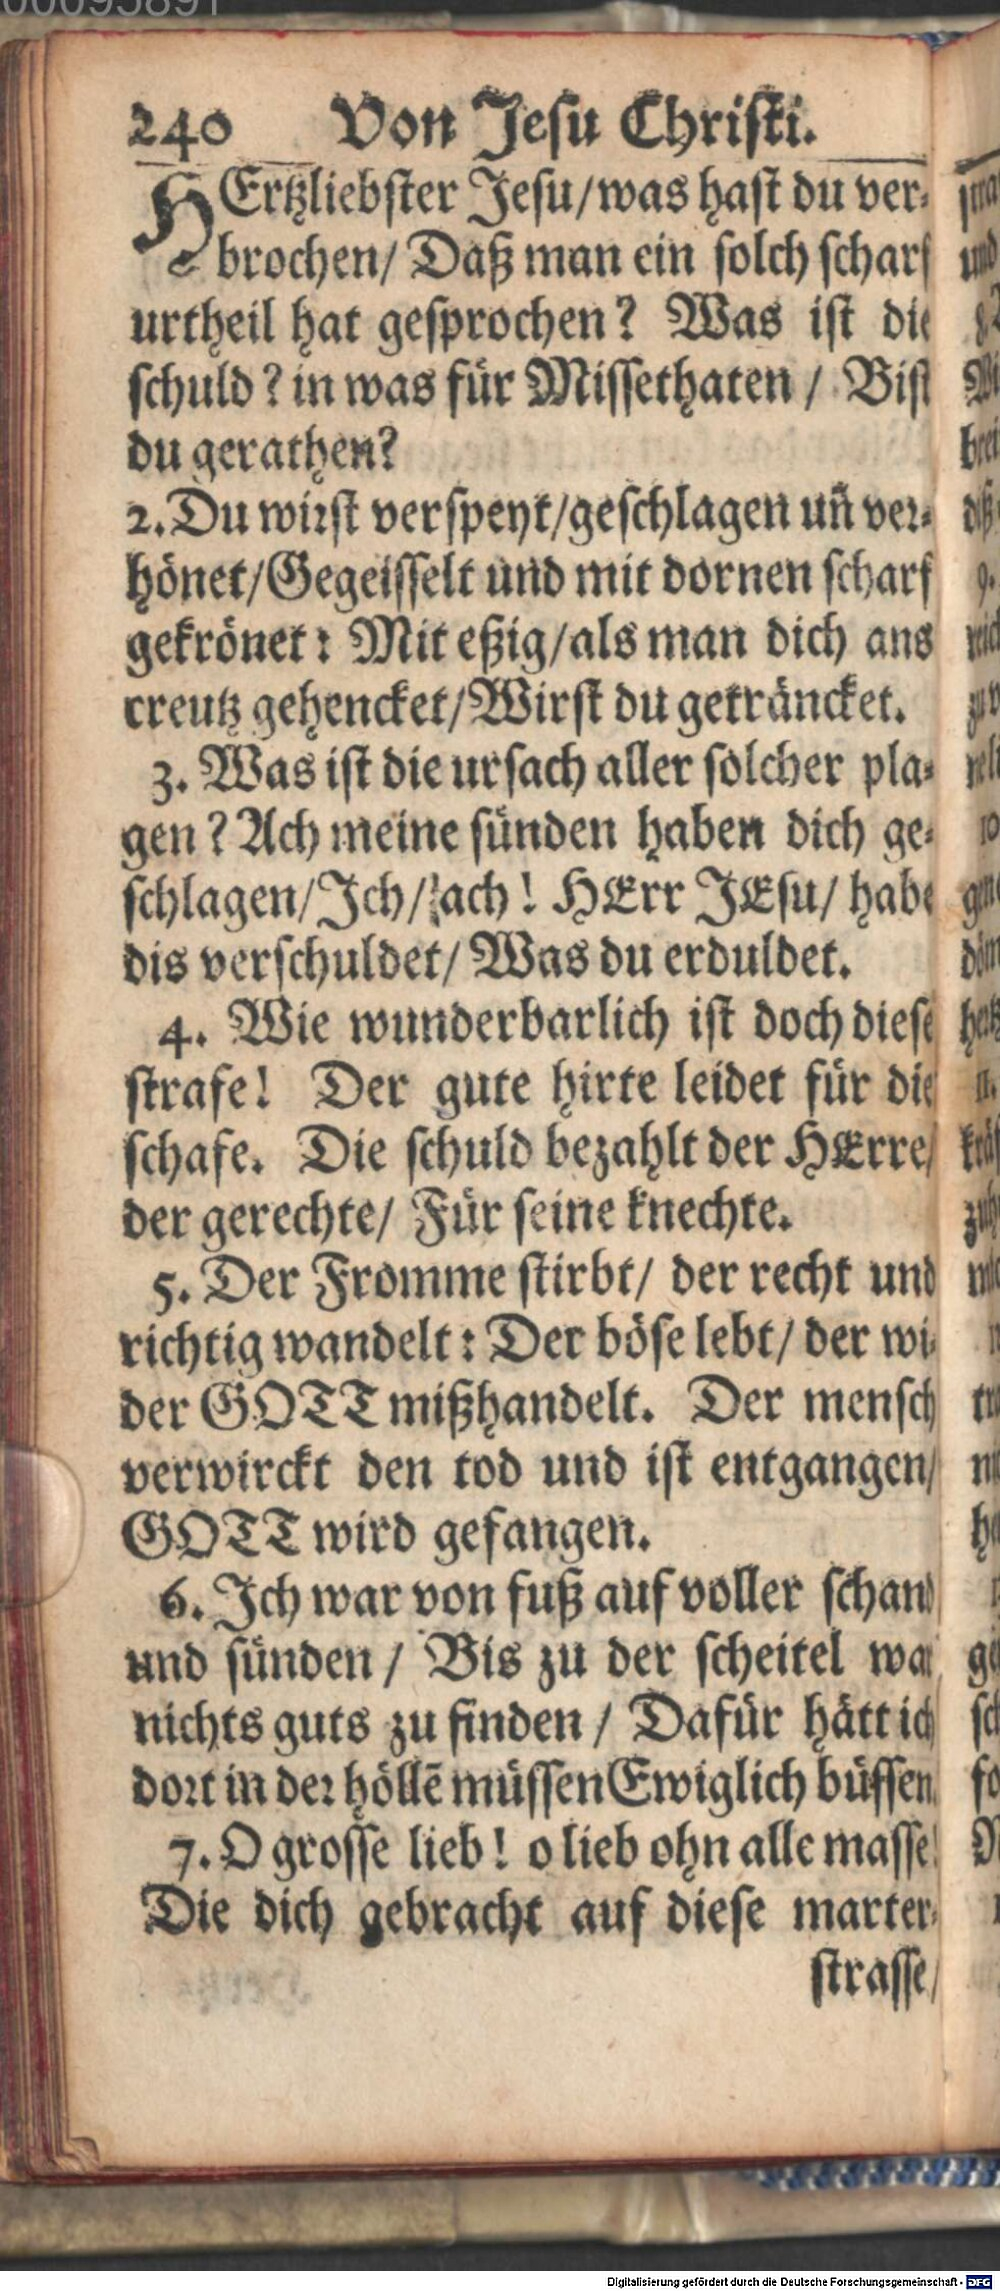 240 Von Jesu Christi.
HErtzliebster Jesu/was hast du ver-
brochen/ Daß man ein solch scharf
urtheil hat gesprochen? Was ist die
schuld? in was für Missethaten / Bist
du gerathen?
2. Du wirst verspeyt/geschlagen uñ ver-
hönet/Gegeisselt und mit dornen scharf
gekrönet: Mit eßig/als man dich ans
creutz gehencket/Wirst du getråncket.
3. Was ist die ursach aller solcher pla-
gen? Ach meine sünden haben dich ge-
schlagen/Ich/ach! HErr JEsu/ habe
dis verschuldet/ Was du erduldet.
4. Wie wunderbarlich ist doch diese
strafe! Der gute hirte leidet für die
schafe. Die schuld bezahlt der HErre/
der gerechte/ Für seine knechte.
5. Der Fromme stirbt/ der recht und
richtig wandelt: Der böse lebt/ der wi-
der GOTT mißhandelt. Der mensch
verwirckt den tod und ist entgangen/
GOTT wird gefangen.
6. Ich war von fuß auf voller schand
und sünden / Bis zu der scheitel war
nichts guts zu finden / Dafür hätt ich
dort in der höllē müssen Ewiglich büssen.
7. O grosse lieb! o lieb ohn alle masse!
Die dich gebracht auf diese marter-
strasse/
Digitalisierung gefördert durch die Deutsche Forschungsgemeinschaft - DFG